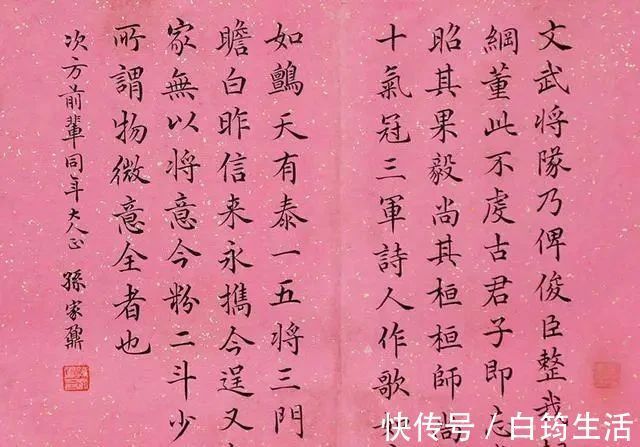 文武将隊乃俾俊臣整我
綱董此不虔古君子即
昭其果毅尚其桓桓師
十氣冠三軍詩人作歌
如鸇天有泰一五将三門
瞻白昨信来永攜今逞又
家無以将意今粉二斗少
所謂物微意全者也
次方前輩同年大人正 孫家鼐
快传号 / 白筠生活